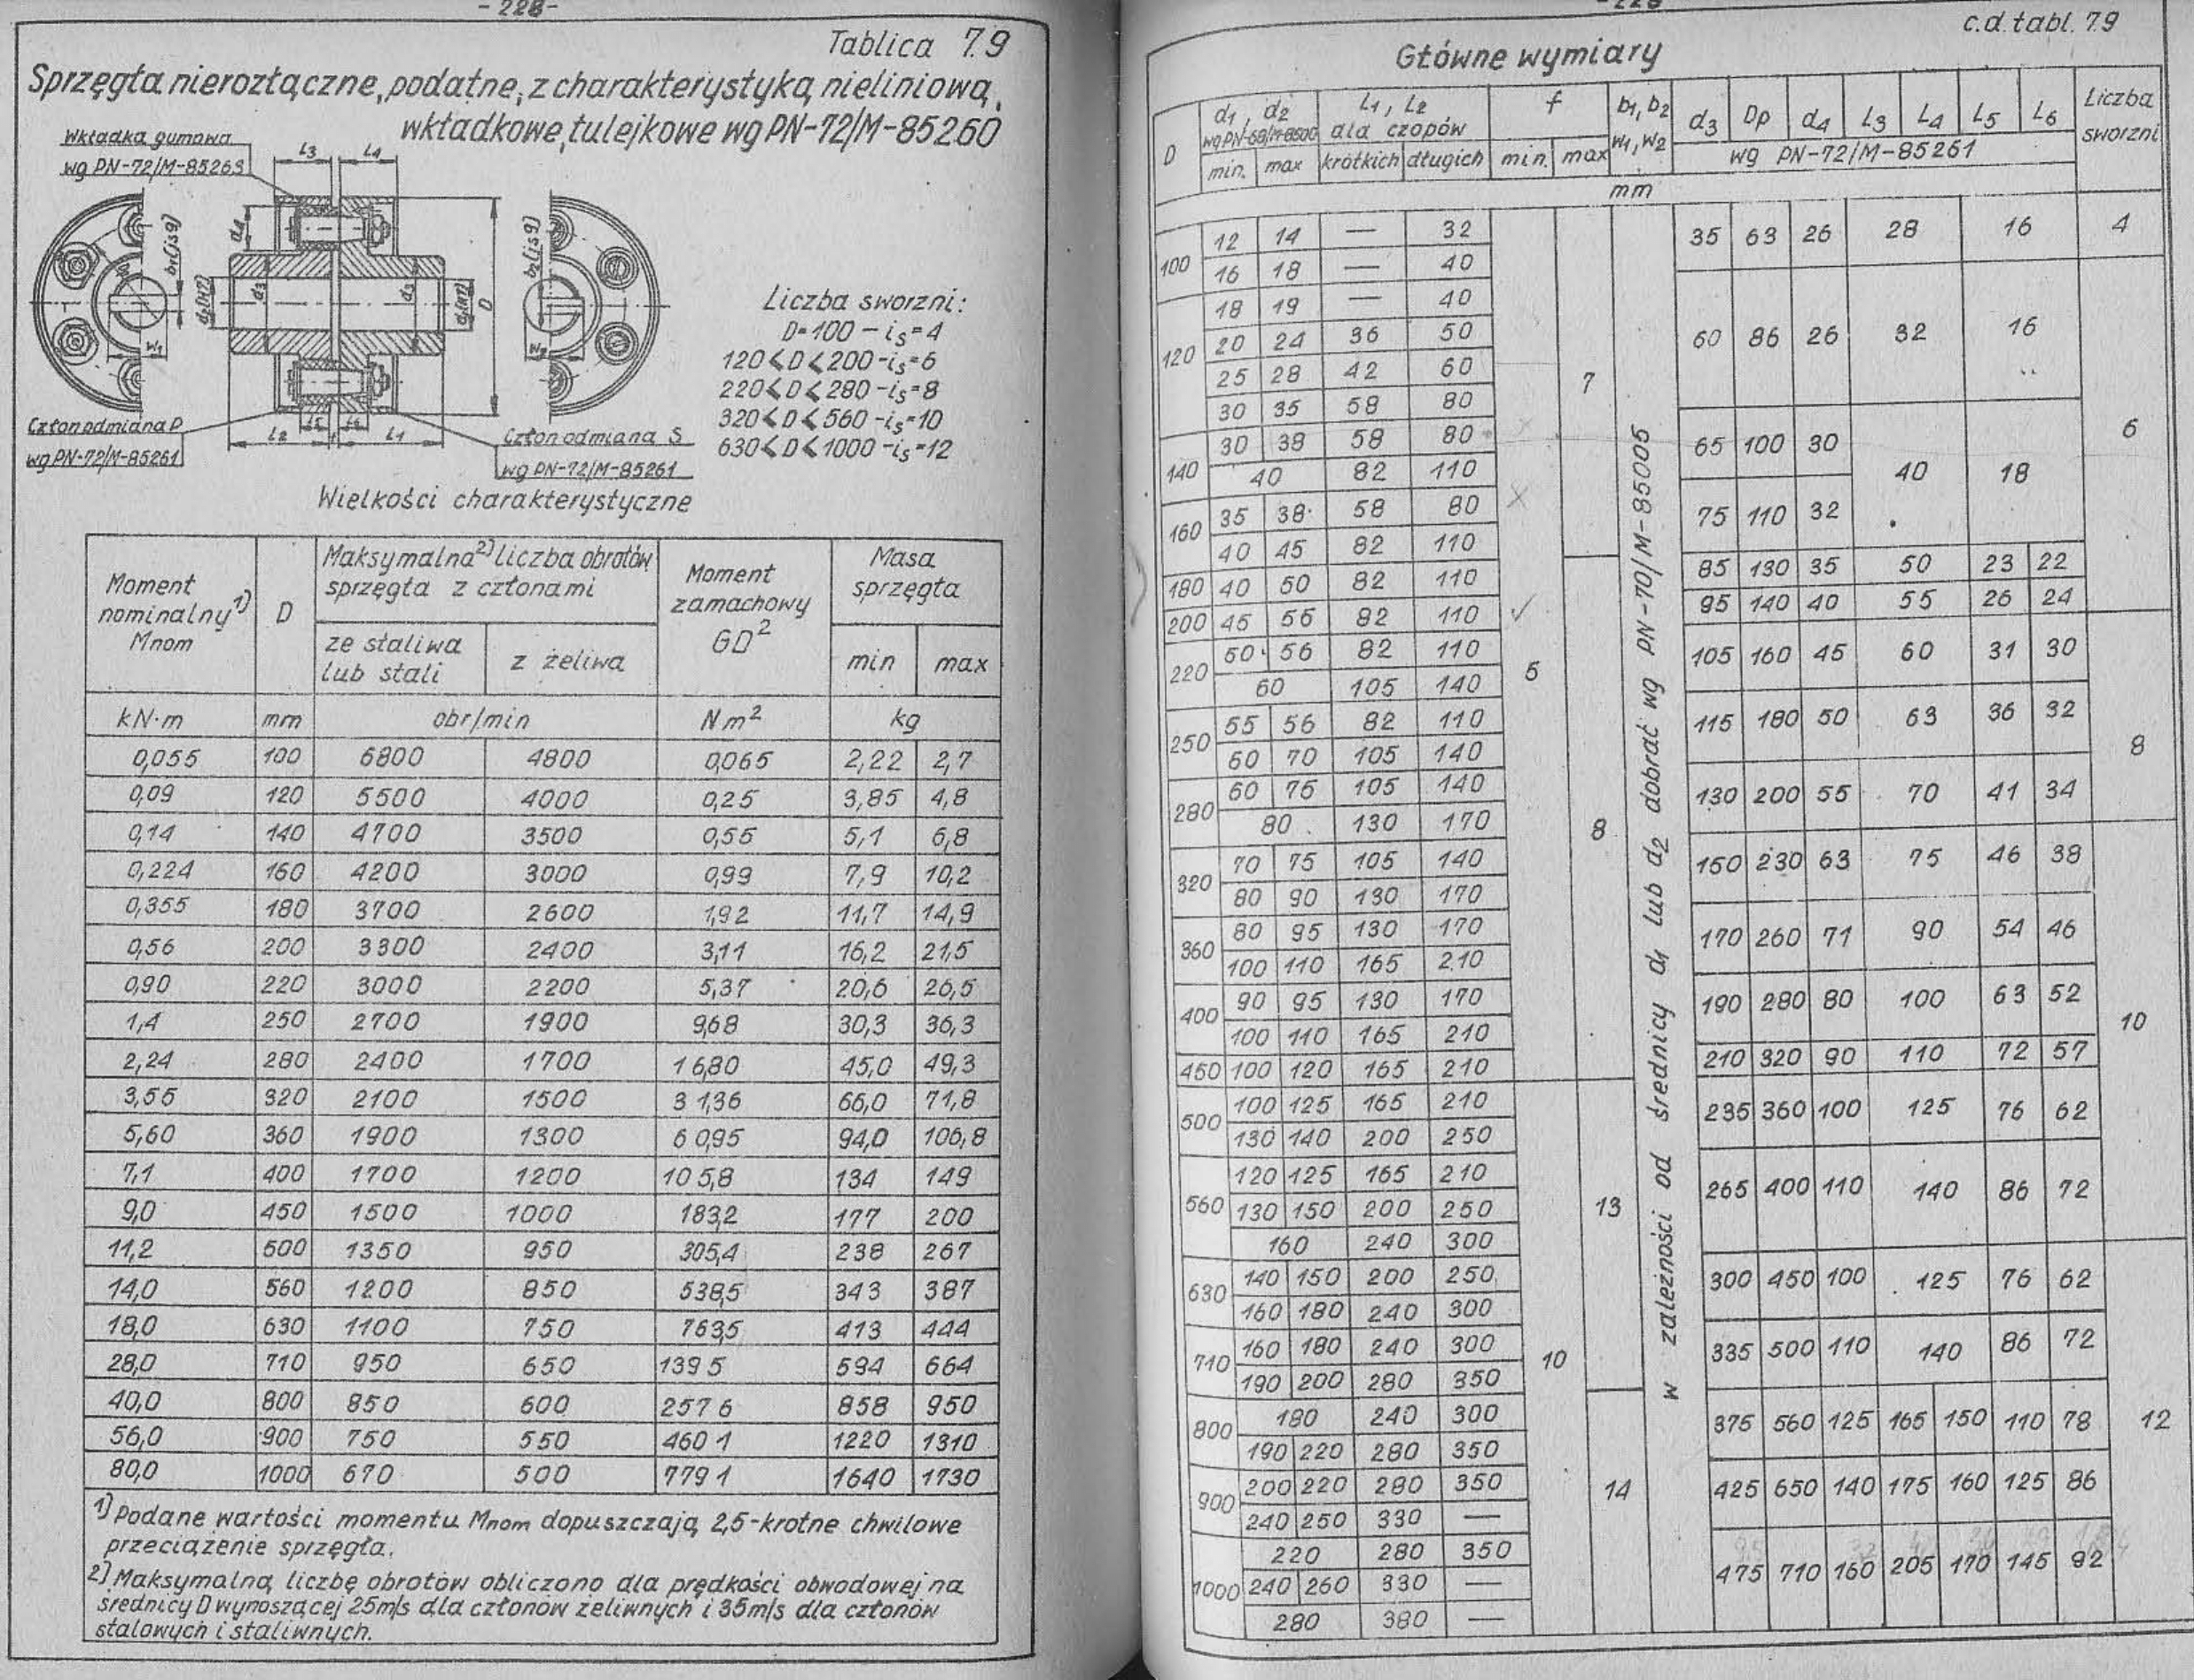 - 228 -
Tablica 7.9
Sprzęgła nierozłączne, podatne, z charakterystyką nieliniową,
wkładkowe, tulejkowe wg PN-72/M-85260
Wkładka gumowa
wg PN-72/M-85263
L3 L4
d4 b1(js9) d2(H7) d3 d3 d1(H7) D b2(js9)
w1 w2
L2 L5 f L6 L1
Człon odmiana P
wg PN-72/M-85261
Człon odmiana S
wg PN-72/M-85261
Liczba sworzni:
D=100 - is=4
120≤D≤200 - is=6
220≤D≤280 - is=8
320≤D≤560 - is=10
630≤D≤1000 - is=12
Wielkości charakterystyczne
Moment nominalny1) Mnom D Maksymalna2) liczba obrotów sprzęgła z członami Moment zamachowy GD2 Masa sprzęgła
ze staliwa lub stali z żeliwa min max
kN·m mm obr/min Nm2 kg
0,055 100 6800 4800 0,065 2,22 2,7
0,09 120 5500 4000 0,25 3,85 4,8
0,14 140 4700 3500 0,55 5,1 6,8
0,224 160 4200 3000 0,99 7,9 10,2
0,355 180 3700 2600 1,92 11,7 14,9
0,56 200 3300 2400 3,11 16,2 21,5
0,90 220 3000 2200 5,37 20,6 26,5
1,4 250 2700 1900 9,68 30,3 36,3
2,24 280 2400 1700 16,80 45,0 49,3
3,55 320 2100 1500 31,36 66,0 71,8
5,60 360 1900 1300 60,95 94,0 106,8
7,1 400 1700 1200 105,8 134 149
9,0 450 1500 1000 183,2 177 200
11,2 500 1350 950 305,4 238 267
14,0 560 1200 850 538,5 343 387
18,0 630 1100 750 763,5 413 444
28,0 710 950 650 1395 594 664
40,0 800 850 600 2576 858 950
56,0 900 750 550 4601 1220 1310
80,0 1000 670 500 7791 1640 1730
1) Podane wartości momentu Mnom dopuszczają 2,5-krotne chwilowe
przeciążenie sprzęgła.
2) Maksymalną liczbę obrotów obliczono dla prędkości obwodowej na
średnicy D wynoszącej 25m/s dla członów żeliwnych i 35m/s dla członów
stalowych i staliwnych.
c.d. tabl. 7.9
Główne wymiary
D d1, d2 L1, L2 f b1, b2 d3 Dp d4 L3 L4 L5 L6 Liczba
wg PN-68/M-8500 dla czopów w1, w2 wg PN-72/M-85261 sworzni
min. max krótkich długich min. max
mm
100 12 14 — 32 5 7 35 63 26 28 16 4
16 18 — 40
120 18 19 — 40 60 86 26 32 16 6
20 24 36 50
25 28 42 60
30 35 58 80
140 30 38 58 80 65 100 30 40 18
40 82 110
160 35 38 58 80 75 110 32
40 45 82 110
180 40 50 82 110 8 85 130 35 50 23 22
200 45 56 82 110 95 140 40 55 26 24
220 50 56 82 110 105 160 45 60 31 30 8
60 105 140
250 55 56 82 110 115 180 50 63 36 32
60 70 105 140
280 60 75 105 140 130 200 55 70 41 34
80 130 170
320 70 75 105 140 150 230 63 75 46 38 10
80 90 130 170
360 80 95 130 170 170 260 71 90 54 46
100 110 165 210
400 90 95 130 170 190 280 80 100 63 52
100 110 165 210
450 100 120 165 210 210 320 90 110 72 57
500 100 125 165 210 10 13 235 360 100 125 76 62
130 140 200 250
560 120 125 165 210 265 400 110 140 86 72
130 150 200 250
160 240 300
630 140 150 200 250 300 450 100 125 76 62 12
160 180 240 300
710 160 180 240 300 335 500 110 140 86 72
190 200 280 350
800 180 240 300 14 375 560 125 165 150 110 78
190 220 280 350
900 200 220 280 350 425 650 140 175 160 125 86
240 250 330 —
1000 220 280 350 475 710 160 205 170 145 92
240 260 330 —
280 380 —
w zależności od średnicy d1 lub d2 dobrać wg PN-70/M-85005